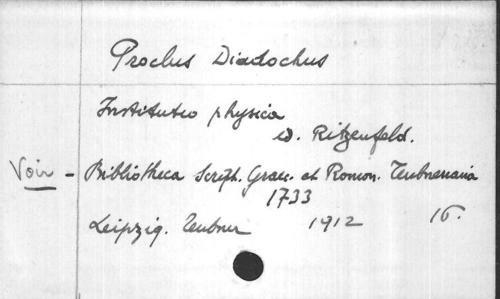 Proclus Diadochus
Institutio physica
ed. Ritzenfeld.
Voir - Bibliotheca Script. Graec. et Roman. Teubneriana
1733
Leipzig. Teubner 1912 16.